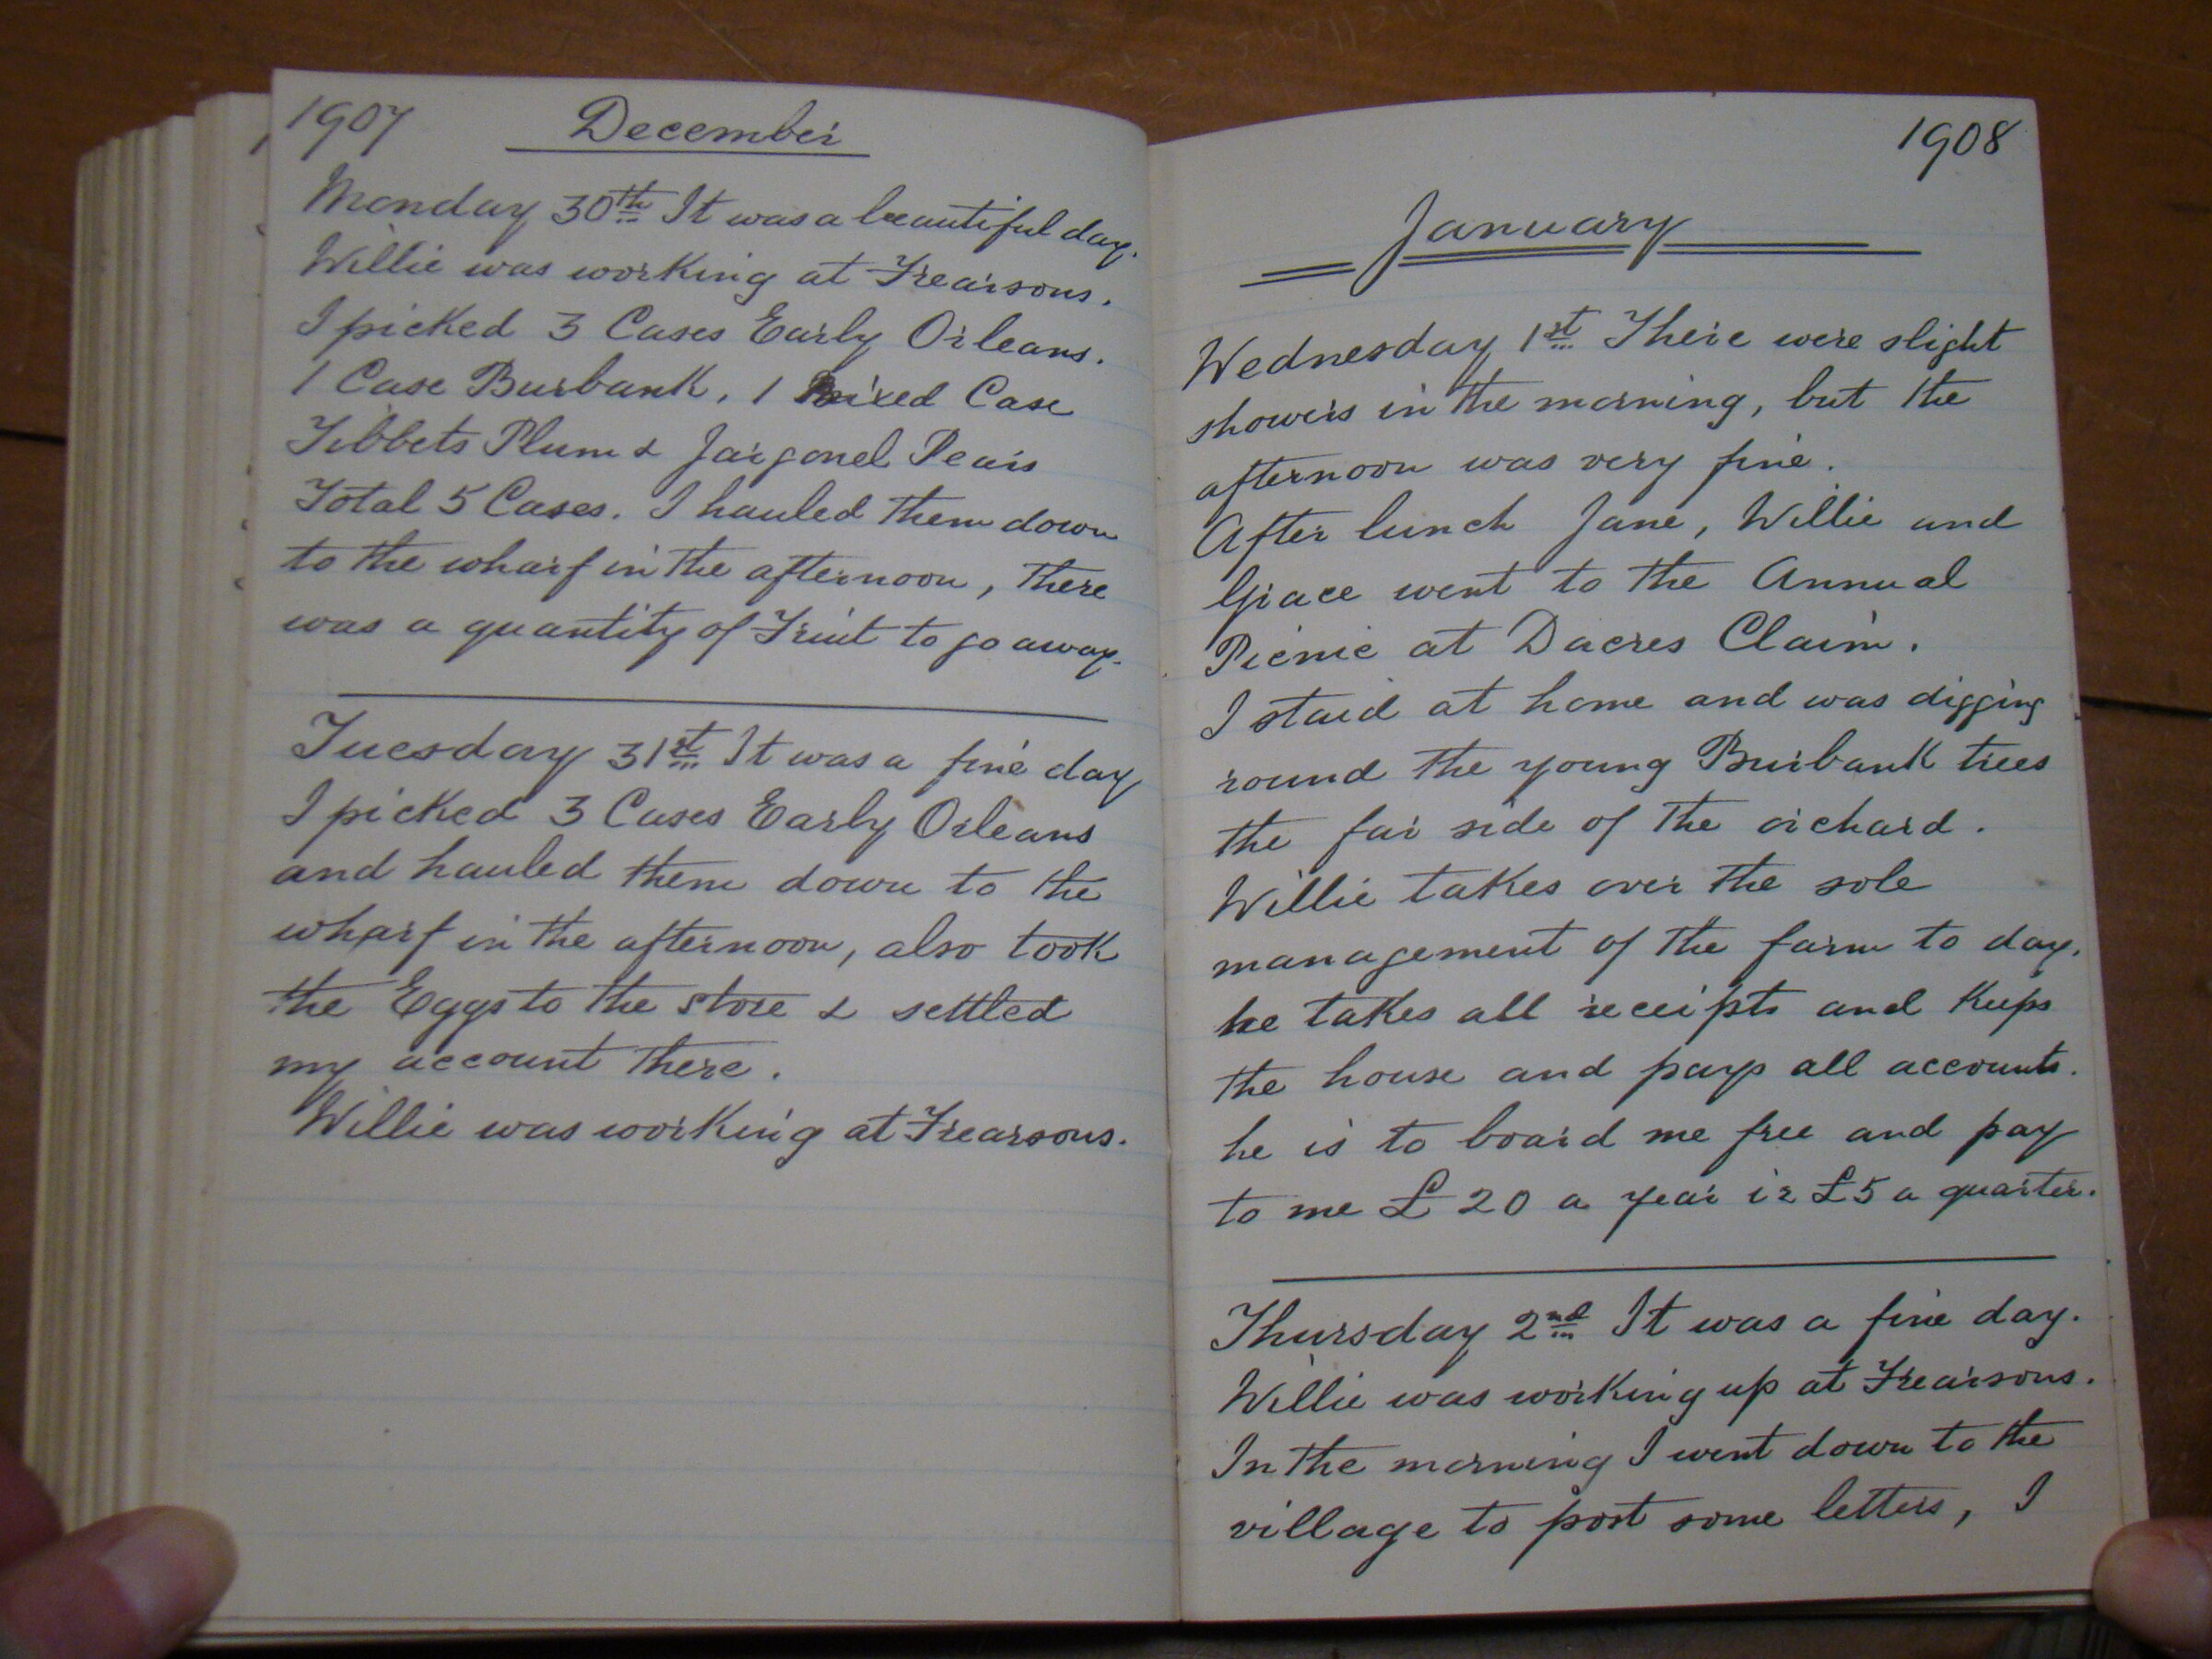 1907 December
Monday 30th It was a beautiful day.
Willie was working at Frearsons.
I picked 3 Cases Early Orleans.
1 Case Burbank, 1 Mixed Case
Tibbets Plum & Jargonel Pears
Total 5 Cases. I hauled them down
to the wharf in the afternoon, there
was a quantity of Fruit to go away.
Tuesday 31st It was a fine day
I picked 3 Cases Early Orleans
and hauled them down to the
wharf in the afternoon, also took
the Eggs to the store & settled
my account there.
Willie was working at Frearsons.
1908
January
Wednesday 1st There were slight
showers in the morning, but the
afternoon was very fine.
After lunch Jane, Willie and
Grace went to the Annual
Picnic at Dacres Claim.
I staid at home and was digging
round the young Burbank trees
the far side of the orchard.
Willie takes over the sole
management of the farm to day.
he takes all receipts and keeps
the house and pays all accounts.
he is to board me free and pay
to me £20 a year ie £5 a quarter.
Thursday 2nd It was a fine day.
Willie was working up at Frearsons.
In the morning I went down to the
village to post some letters, I